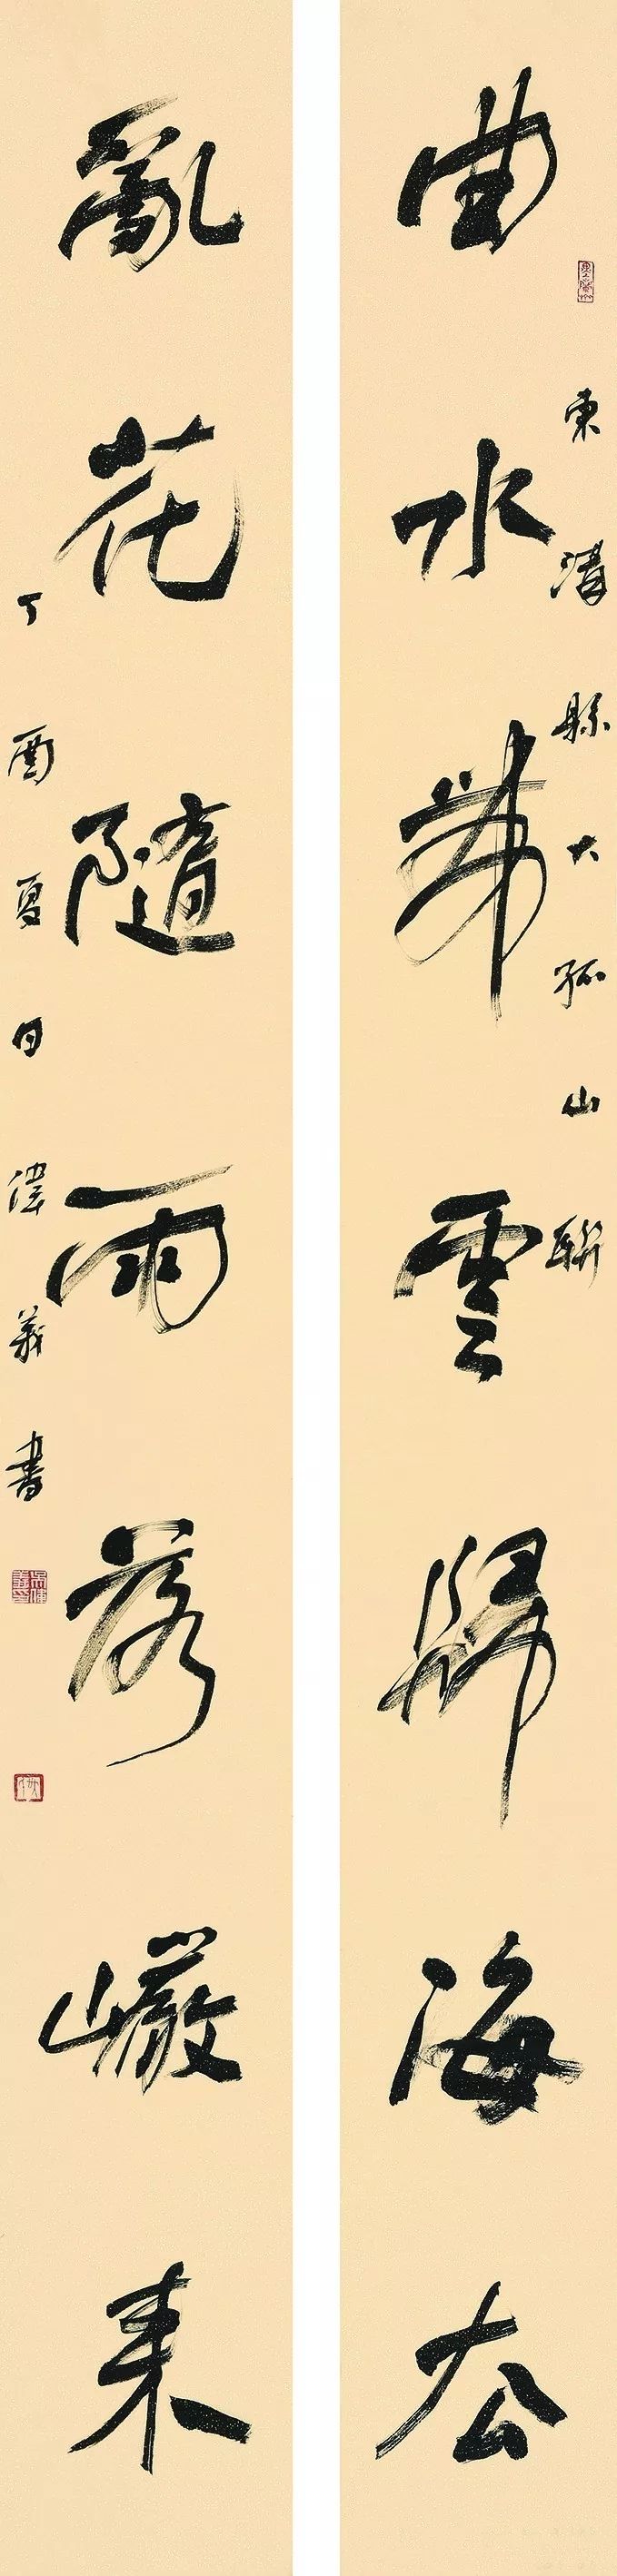 東溝縣大孤山聯
曲水帶雲歸海去
亂花隨雨落巖來
丁酉夏日偉義書